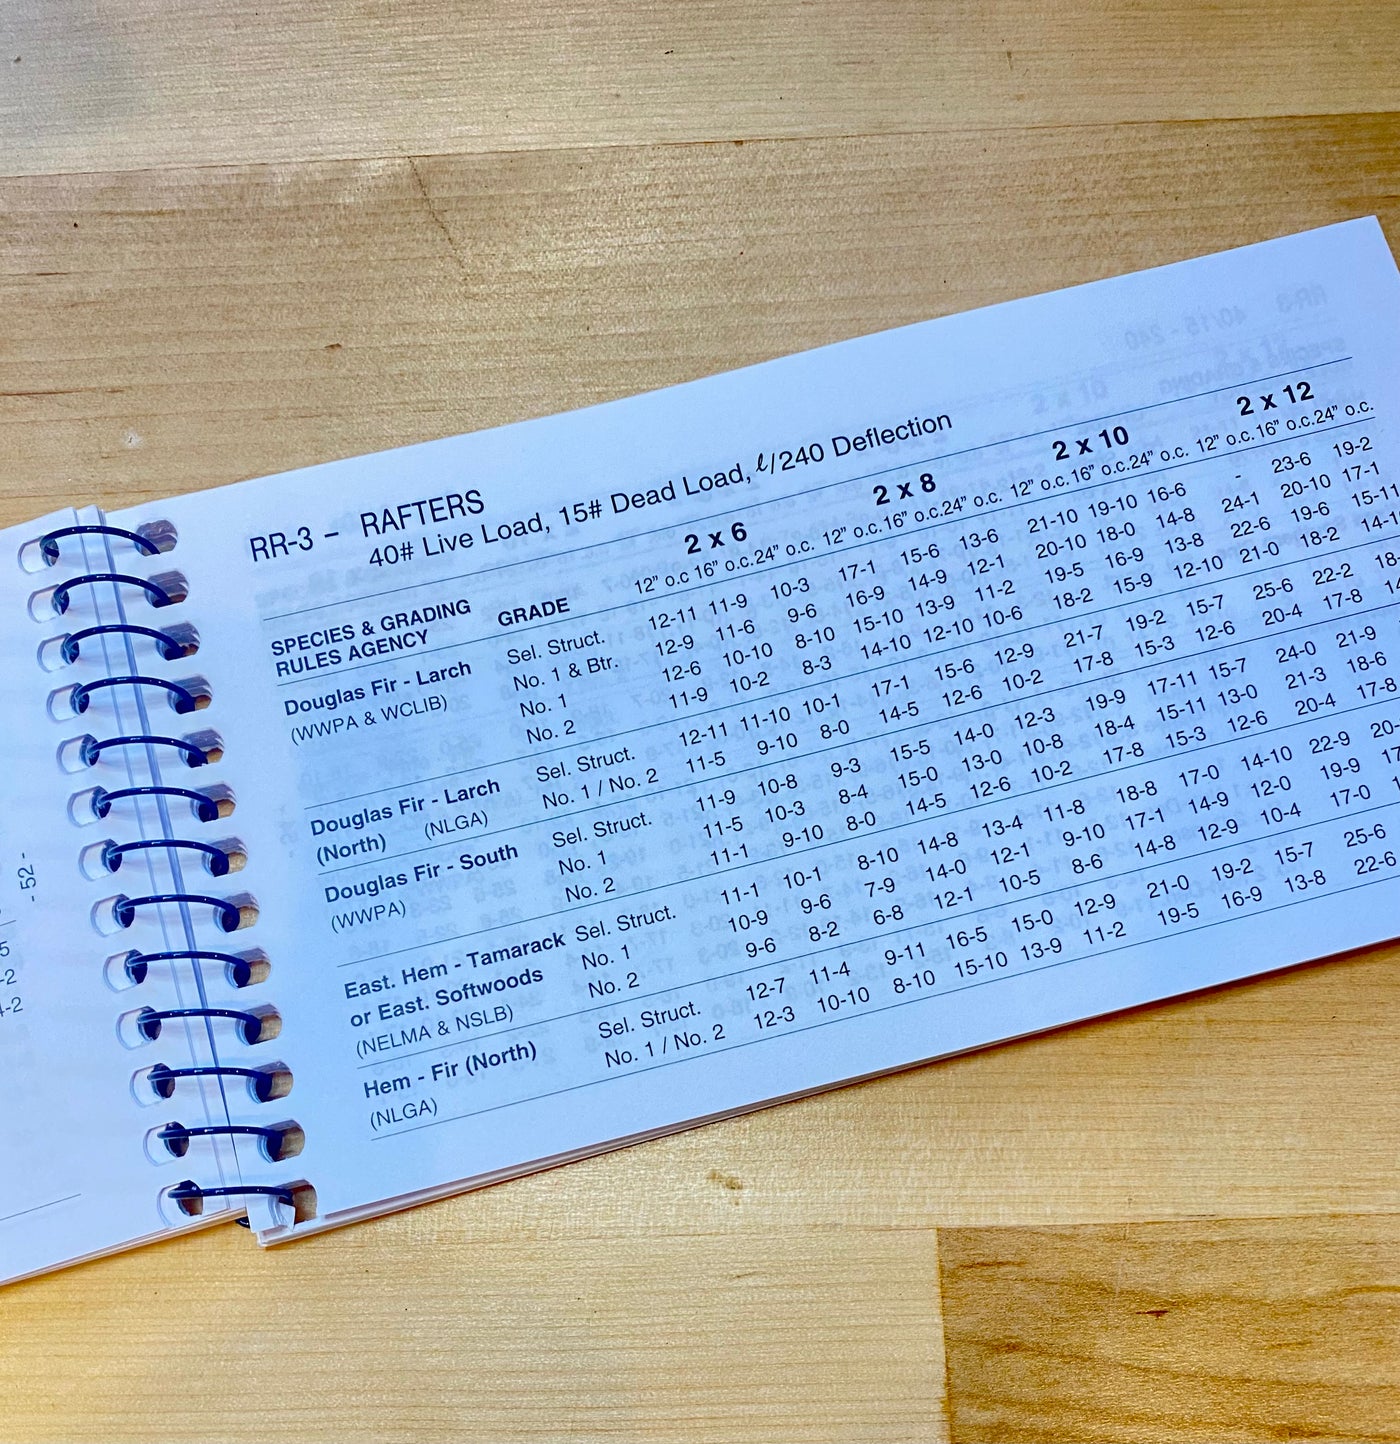 - 52 -
RR-3 – RAFTERS
40# Live Load, 15# Dead Load, ℓ/240 Deflection
2 x 6 2 x 8 2 x 10 2 x 12
SPECIES & GRADING RULES AGENCY GRADE 12" o.c 16" o.c. 24" o.c. 12" o.c. 16" o.c. 24" o.c. 12" o.c. 16" o.c. 24" o.c. 12" o.c. 16" o.c. 24" o.c.
Douglas Fir - Larch Sel. Struct. 12-11 11-9 10-3 17-1 15-6 13-6 21-10 19-10 16-6 - 23-6 19-2
(WWPA & WCLIB) No. 1 & Btr. 12-9 11-6 9-6 16-9 14-9 12-1 20-10 18-0 14-8 24-1 20-10 17-1
No. 1 12-6 10-10 8-10 15-10 13-9 11-2 19-5 16-9 13-8 22-6 19-6 15-11
No. 2 11-9 10-2 8-3 14-10 12-10 10-6 18-2 15-9 12-10 21-0 18-2
Douglas Fir - Larch Sel. Struct. 12-11 11-10 10-1 17-1 15-6 12-9 21-7 19-2 15-7 25-6 22-2
(North) (NLGA) No. 1 / No. 2 11-5 9-10 8-0 14-5 12-6 10-2 17-8 15-3 12-6 20-4 17-8
Douglas Fir - South Sel. Struct. 11-9 10-8 9-3 15-5 14-0 12-3 19-9 17-11 15-7 24-0 21-9
(WWPA) No. 1 11-5 10-3 8-4 15-0 13-0 10-8 18-4 15-11 13-0 21-3 18-6
No. 2 11-1 9-10 8-0 14-5 12-6 10-2 17-8 15-3 12-6 20-4 17-8
East. Hem - Tamarack Sel. Struct. 11-1 10-1 8-10 14-8 13-4 11-8 18-8 17-0 14-10 22-9
or East. Softwoods No. 1 10-9 9-6 7-9 14-0 12-1 9-10 17-1 14-9 12-0 19-9
(NELMA & NSLB) No. 2 9-6 8-2 6-8 12-1 10-5 8-6 14-8 12-9 10-4 17-0
Hem - Fir (North) Sel. Struct. 12-7 11-4 9-11 16-5 15-0 12-9 21-0 19-2 15-7 25-6
(NLGA) No. 1 / No. 2 12-3 10-10 8-10 15-10 13-9 11-2 19-5 16-9 13-8 22-6